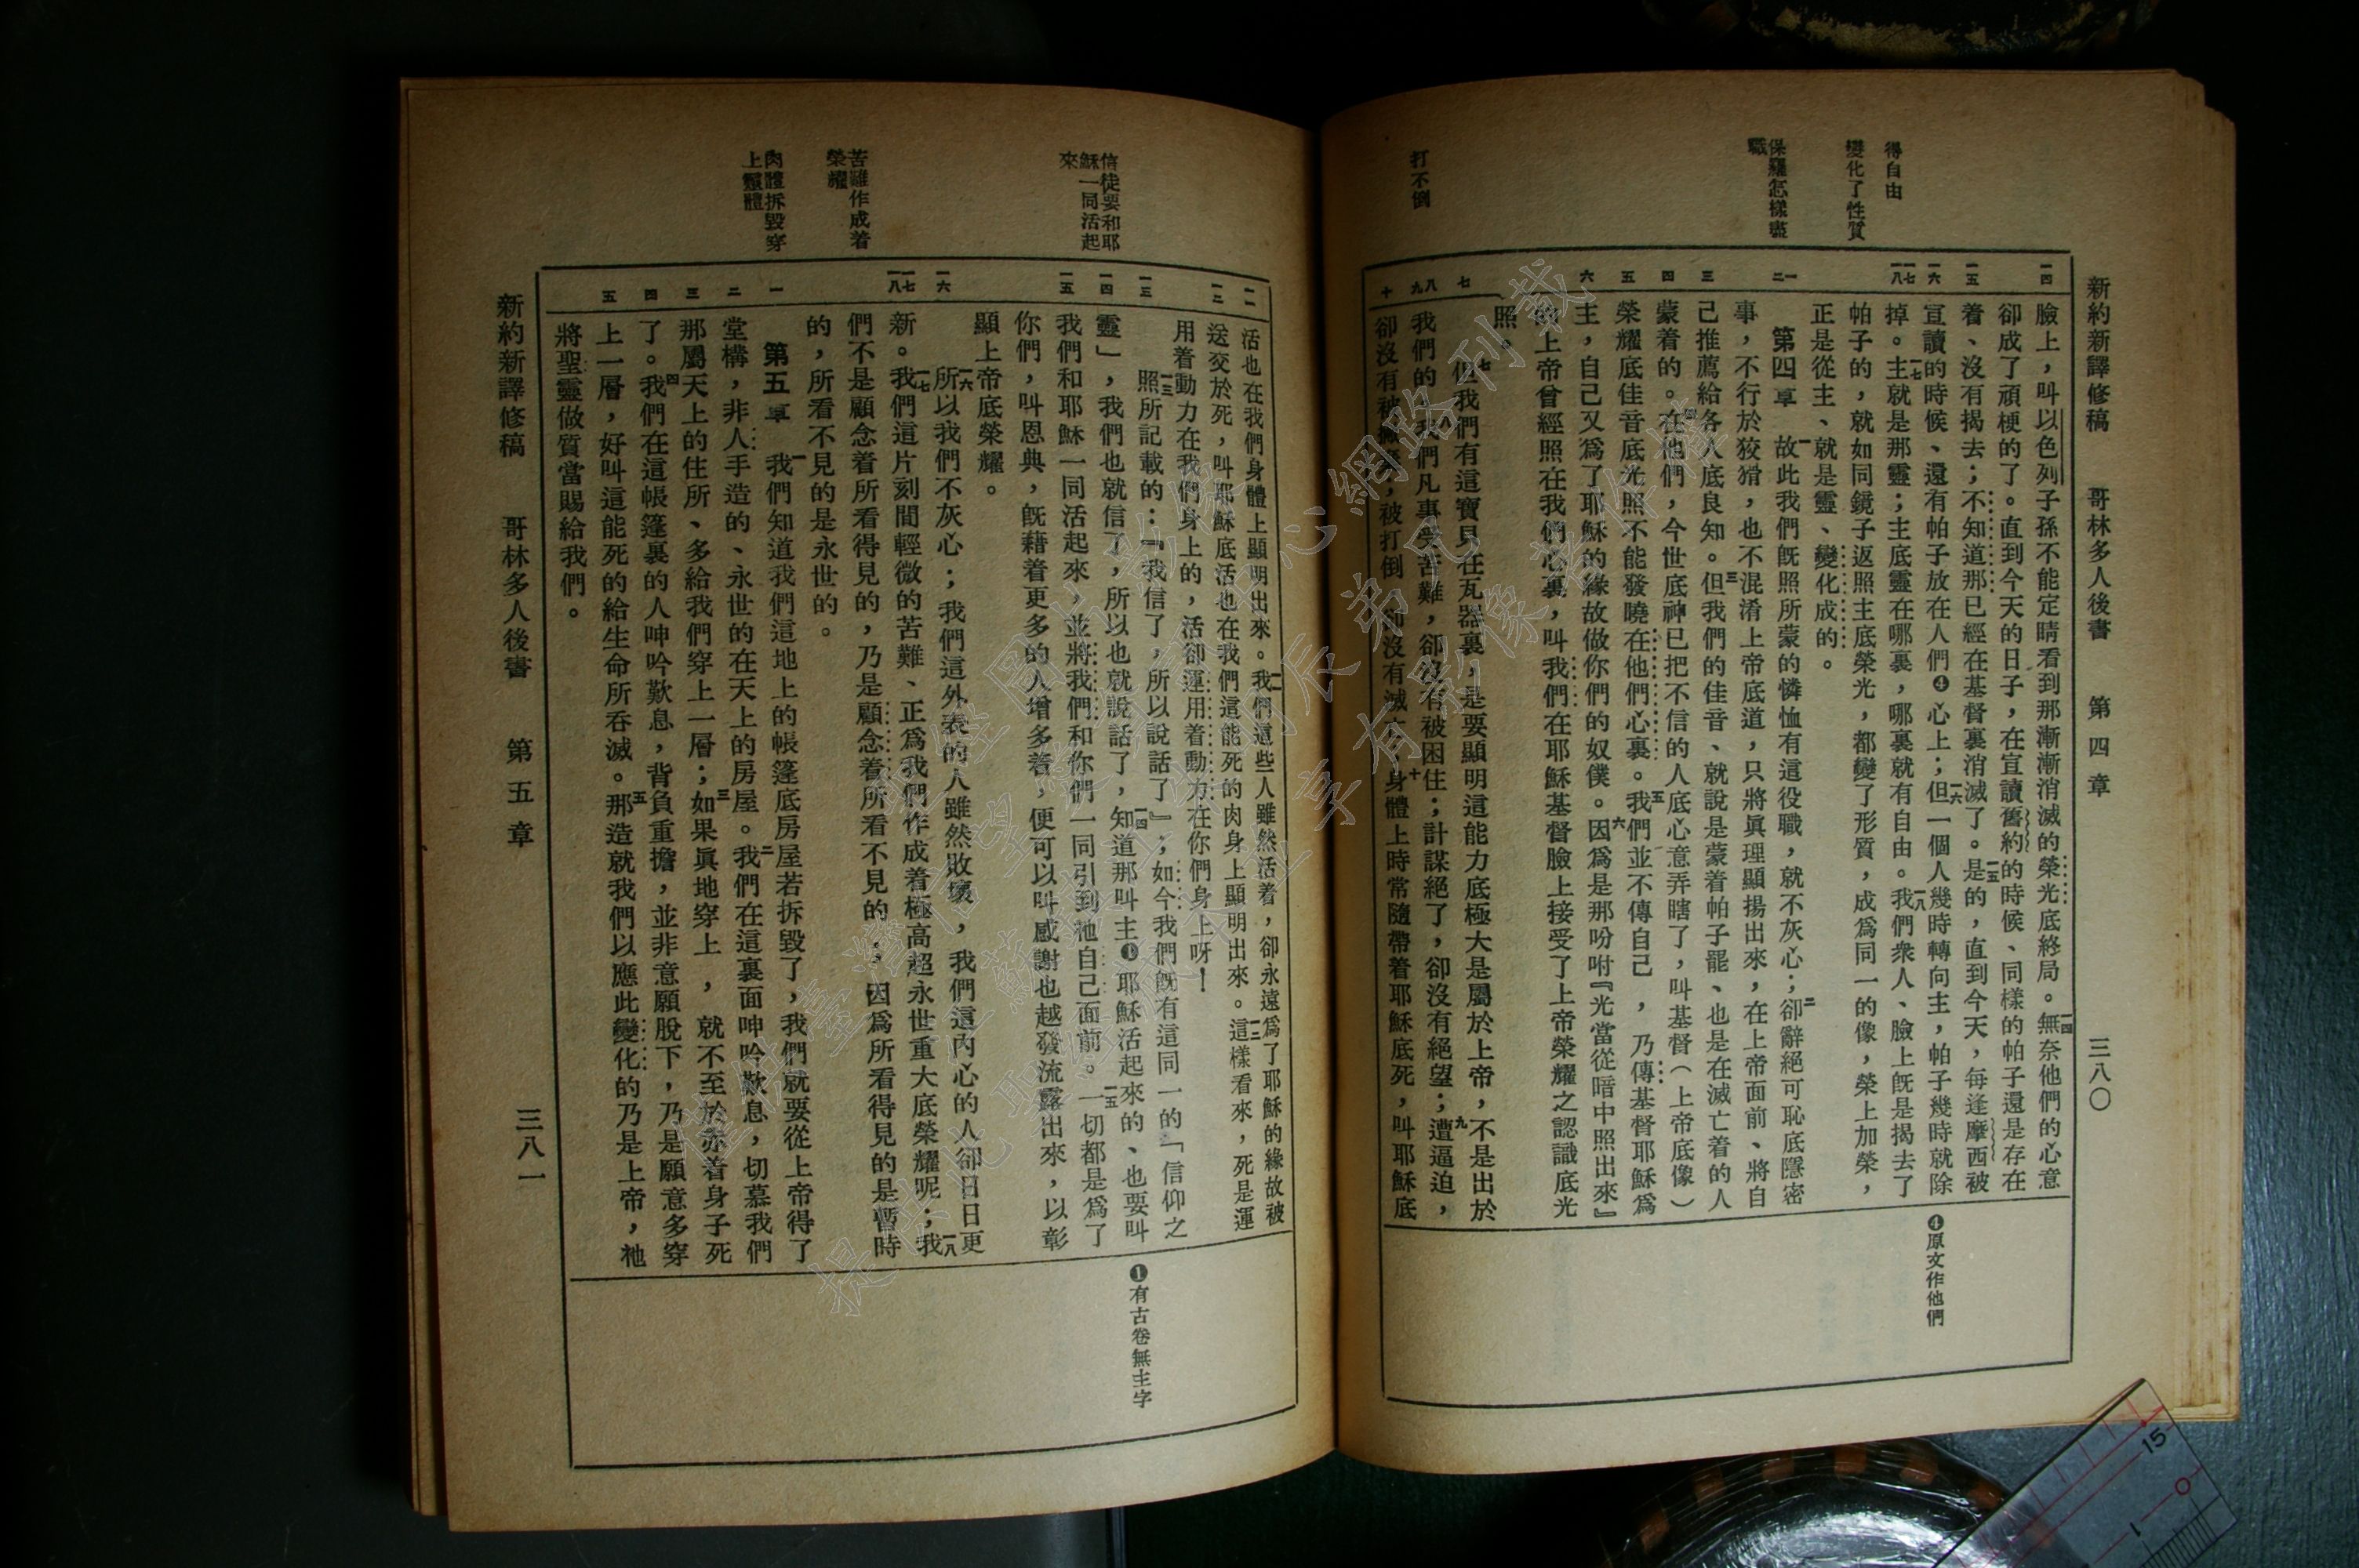 新約新譯修稿 哥林多人後書 第四章 三八〇
得自由
變化了性質
保羅怎樣盡
職
打不倒
一四
一五
一六
一七
一八
一
二
三
四
五
六
七
八
九
十
臉上，叫以色列子孫不能定睛看到那漸漸消滅的榮光底終局。一四無奈他們的心意
卻成了頑梗的了。直到今天的日子，在宣讀舊約的時候、同樣的帕子還是存在
着、沒有揭去；不知道那已經在基督裏消滅了。一五是的，直到今天，每逢摩西被
宣讀的時候、還有帕子放在人們❹心上；一六但一個人幾時轉向主，帕子幾時就除
掉。一七主就是那靈；主底靈在哪裏，哪裏就有自由。一八我們衆人、臉上既是揭去了
帕子的，就如同鏡子返照主底榮光，都變了形質，成爲同一的像，榮上加榮，
正是從主、就是靈、變化成的。
第四章 一故此我們既照所蒙的憐恤有這役職，就不灰心；二卻辭絕可恥底隱密
事，不行於狡猾，也不混淆上帝底道，只將眞理顯揚出來，在上帝面前、將自
己推薦給各人底良知。三但我們的佳音、就說是蒙着帕子罷、也是在滅亡着的人
蒙着的。四在他們，今世底神已把不信的人底心意弄瞎了，叫基督（上帝底像）
榮耀底佳音底光照不能發曉在他們心裏。五我們並不傳自己，乃傳基督耶穌爲
主，自己又爲了耶穌的緣故做你們的奴僕。六因爲是那吩咐『光當從暗中照出來』
的上帝曾經照在我們心裏，叫我們在耶穌基督臉上接受了上帝榮耀之認識底光
照。
七但我們有這寶貝在瓦器裏，是要顯明這能力底極大是屬於上帝，不是出於
我們的。八我們凡事受苦難，卻沒有被困住；計謀絕了，卻沒有絕望；九遭逼迫，
卻沒有被撇棄；被打倒，卻沒有滅亡；十身體上時常隨帶着耶穌底死，叫耶穌底
❹原文作他們
信徒要和耶
穌一同活起
來
苦難作成着
榮耀
肉體拆毀穿
上靈體
一一
一二
一三
一四
一五
一六
一七
一八
一
二
三
四
五
活也在我們身體上顯明出來。一一我們這些人雖然活着，卻永遠爲了耶穌的緣故被
送交於死，叫耶穌底活也在我們這能死的肉身上顯明出來。一二這樣看來，死是運
用着動力在我們身上的，活卻運用着動力在你們身上呀！
一三照所記載的：『我信了，所以說話了』；如今我們既有這同一的「信仰之
靈」，我們也就信了，所以也就說話了，一四知道那叫主❶耶穌活起來的、也要叫
我們和耶穌一同活起來，並將我們和你們一同引到祂自己面前。一五一切都是爲了
你們，叫恩典，既藉着更多的人增多着，便可以叫感謝也越發流露出來，以彰
顯上帝底榮耀。
一六所以我們不灰心；我們這外表的人雖然敗壞，我們這內心的人卻日日更
新。一七我們這片刻間輕微的苦難、正爲我們作成着極高超永世重大底榮耀呢；一八我
們不是顧念着所看得見的，乃是顧念着所看不見的，因爲所看得見的是暫時
的，所看不見的是永世的。
第五章 一我們知道我們這地上的帳篷底房屋若拆毀了，我們就要從上帝得了
堂構，非人手造的、永世的在天上的房屋。二我們在這裏面呻吟歎息，切慕我們
那屬天上的住所、多給我們穿上一層；三如果眞地穿上，就不至於赤着身子死
了。四我們在這帳篷裏的人呻吟歎息，背負重擔，並非意願脫下，乃是願意多穿
上一層，好叫這能死的給生命所吞滅。五那造就我們以應此變化的乃是上帝，祂
將聖靈做質當賜給我們。
❶有古卷無主字
新約新譯修稿 哥林多人後書 第五章 三八一
15